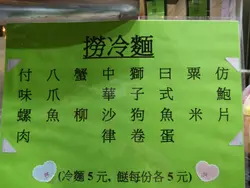 撈冷麵
仿鮑片
粟米
日式魚蛋
獅子狗卷
中華沙律
蟹柳
八爪魚
付味螺肉
(冷麵5元, 餸每份各5元)